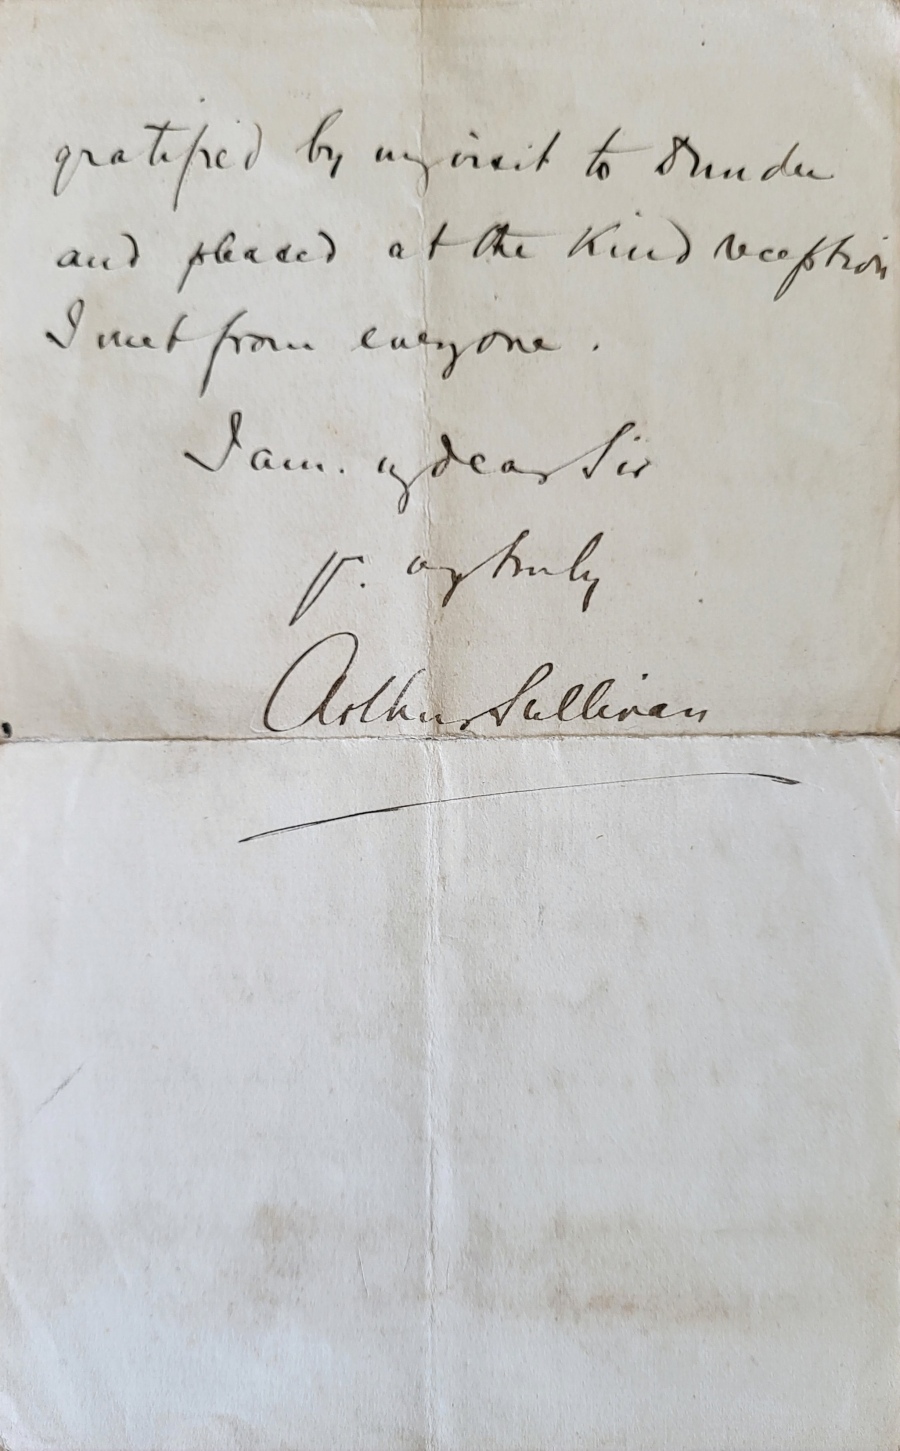 gratified by my visit to Dundee
and pleased at the kind reception
I met from everyone.
I am. my dear Sir
y. very truly
Arthur Sullivan